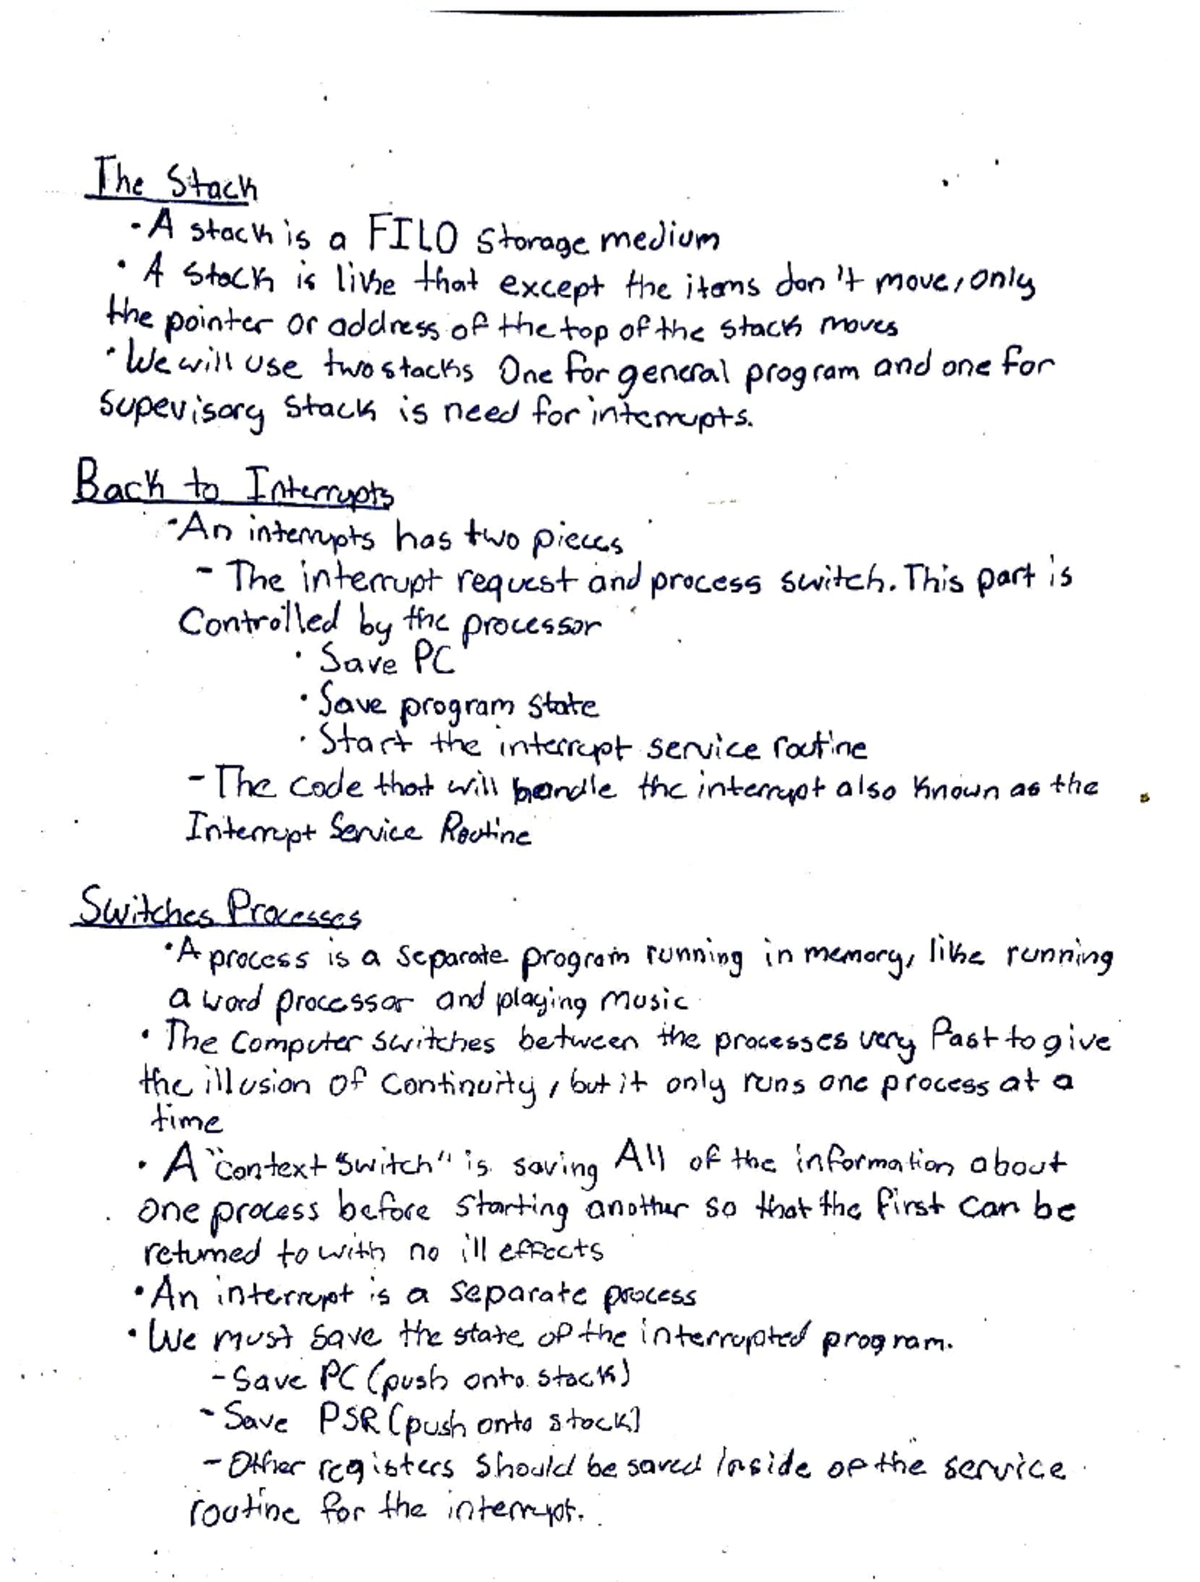 The Stack
- A stack is a FILO storage medium
• A stack is like that except the items don't move, only
the pointer or address of the top of the stack moves
• We will use two stacks One for general program and one for
supevisory stack is need for interrupts.
Back to Interrupts
• An interrupts has two pieces
- The interrupt request and process switch. This part is
Controlled by the processor
• Save PC
• Save program state
• Start the interrupt service routine
- The code that will handle the interrupt also known as the
Interrupt Service Routine
Switches Processes
• A process is a separate program running in memory, like running
a word processor and playing music
• The Computer switches between the processes very fast to give
the illusion of continuity, but it only runs one process at a
time
• A "context switch" is saving All of the information about
one process before starting another so that the first can be
returned to with no ill effects
• An interrupt is a separate process
• We must save the state of the interrupted program.
- Save PC (push onto stack)
- Save PSR (push onto stack)
- Other registers should be saved inside of the service
routine for the interrupt.